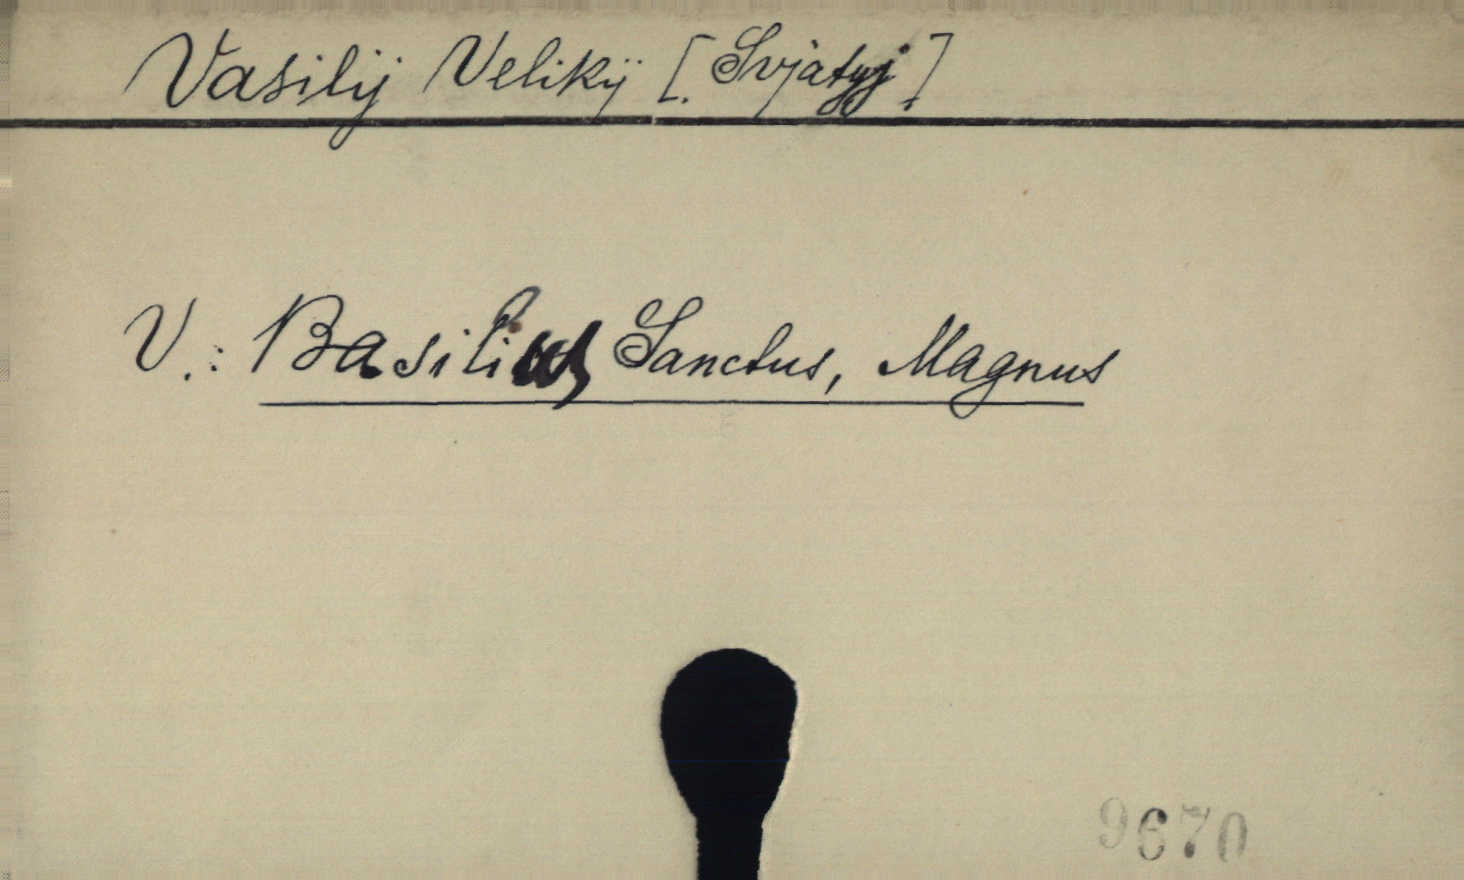 Vasilij Velikij [Svjatyj]
V.: Basilius Sanctus, Magnus
9670